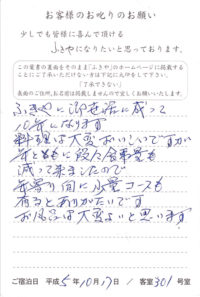 お客様のお叱りのお願い
少しでも皆様に喜んで頂ける
ふきやになりたいと思っております。
この葉書の裏面をそのまま「ふきや」のホームページに掲載する
ことにご了承いただけない方は下記に〇印をして下さい。
「了承できない」
表面のご住所、お名前は掲載しませんので宜しくお願いいたします。
ふきやに御世話に成って
10年になります
料理は大変おいしいですが
年とともに段々食事量も
減って来ましたので
年寄り向に小量コースも
有るとありがたいです
お風呂は大変よいと思います
ご宿泊日 平成5年10月17日 / 客室301号室